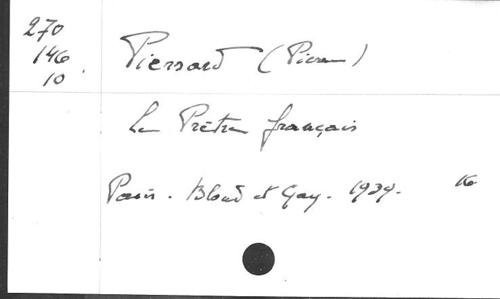 270
146
10.
Piersard (Pierre)
Le Prêtre français
Paris. Bloud et Gay. 1939. 16